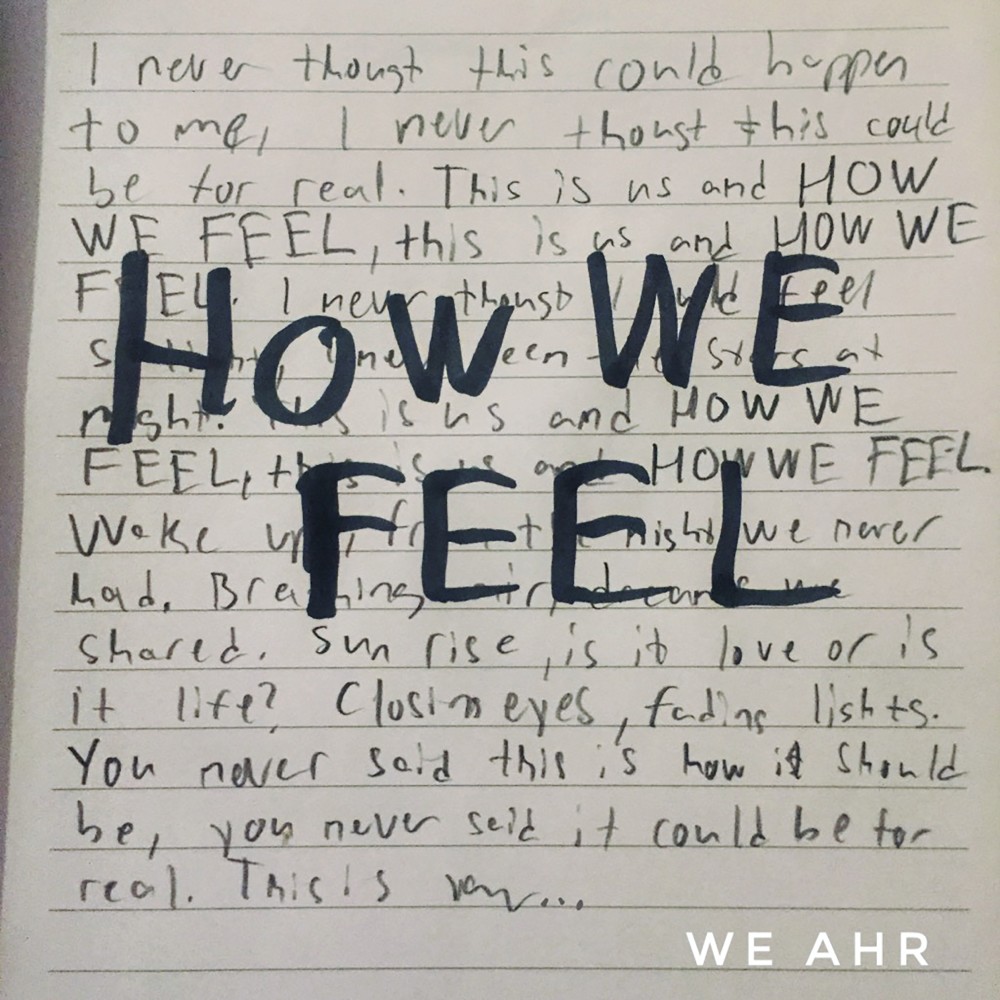 I never thougt this could happen
to me, I never thougt this could
be for real. This is us and HOW
WE FEEL, this is us and HOW WE
FEEL. I never thougt I could feel
HOW WE
stars at
night. This is us and HOW WE
FEEL, this is us and HOW WE FEEL.
FEEL
Wake up, night we never
had. Breathing air, we
shared. Sun rise, is it love or is
it life? Closin eyes, fading lights.
You never said this is how it should
be, you never said it could be for
real. This is
WE AHR